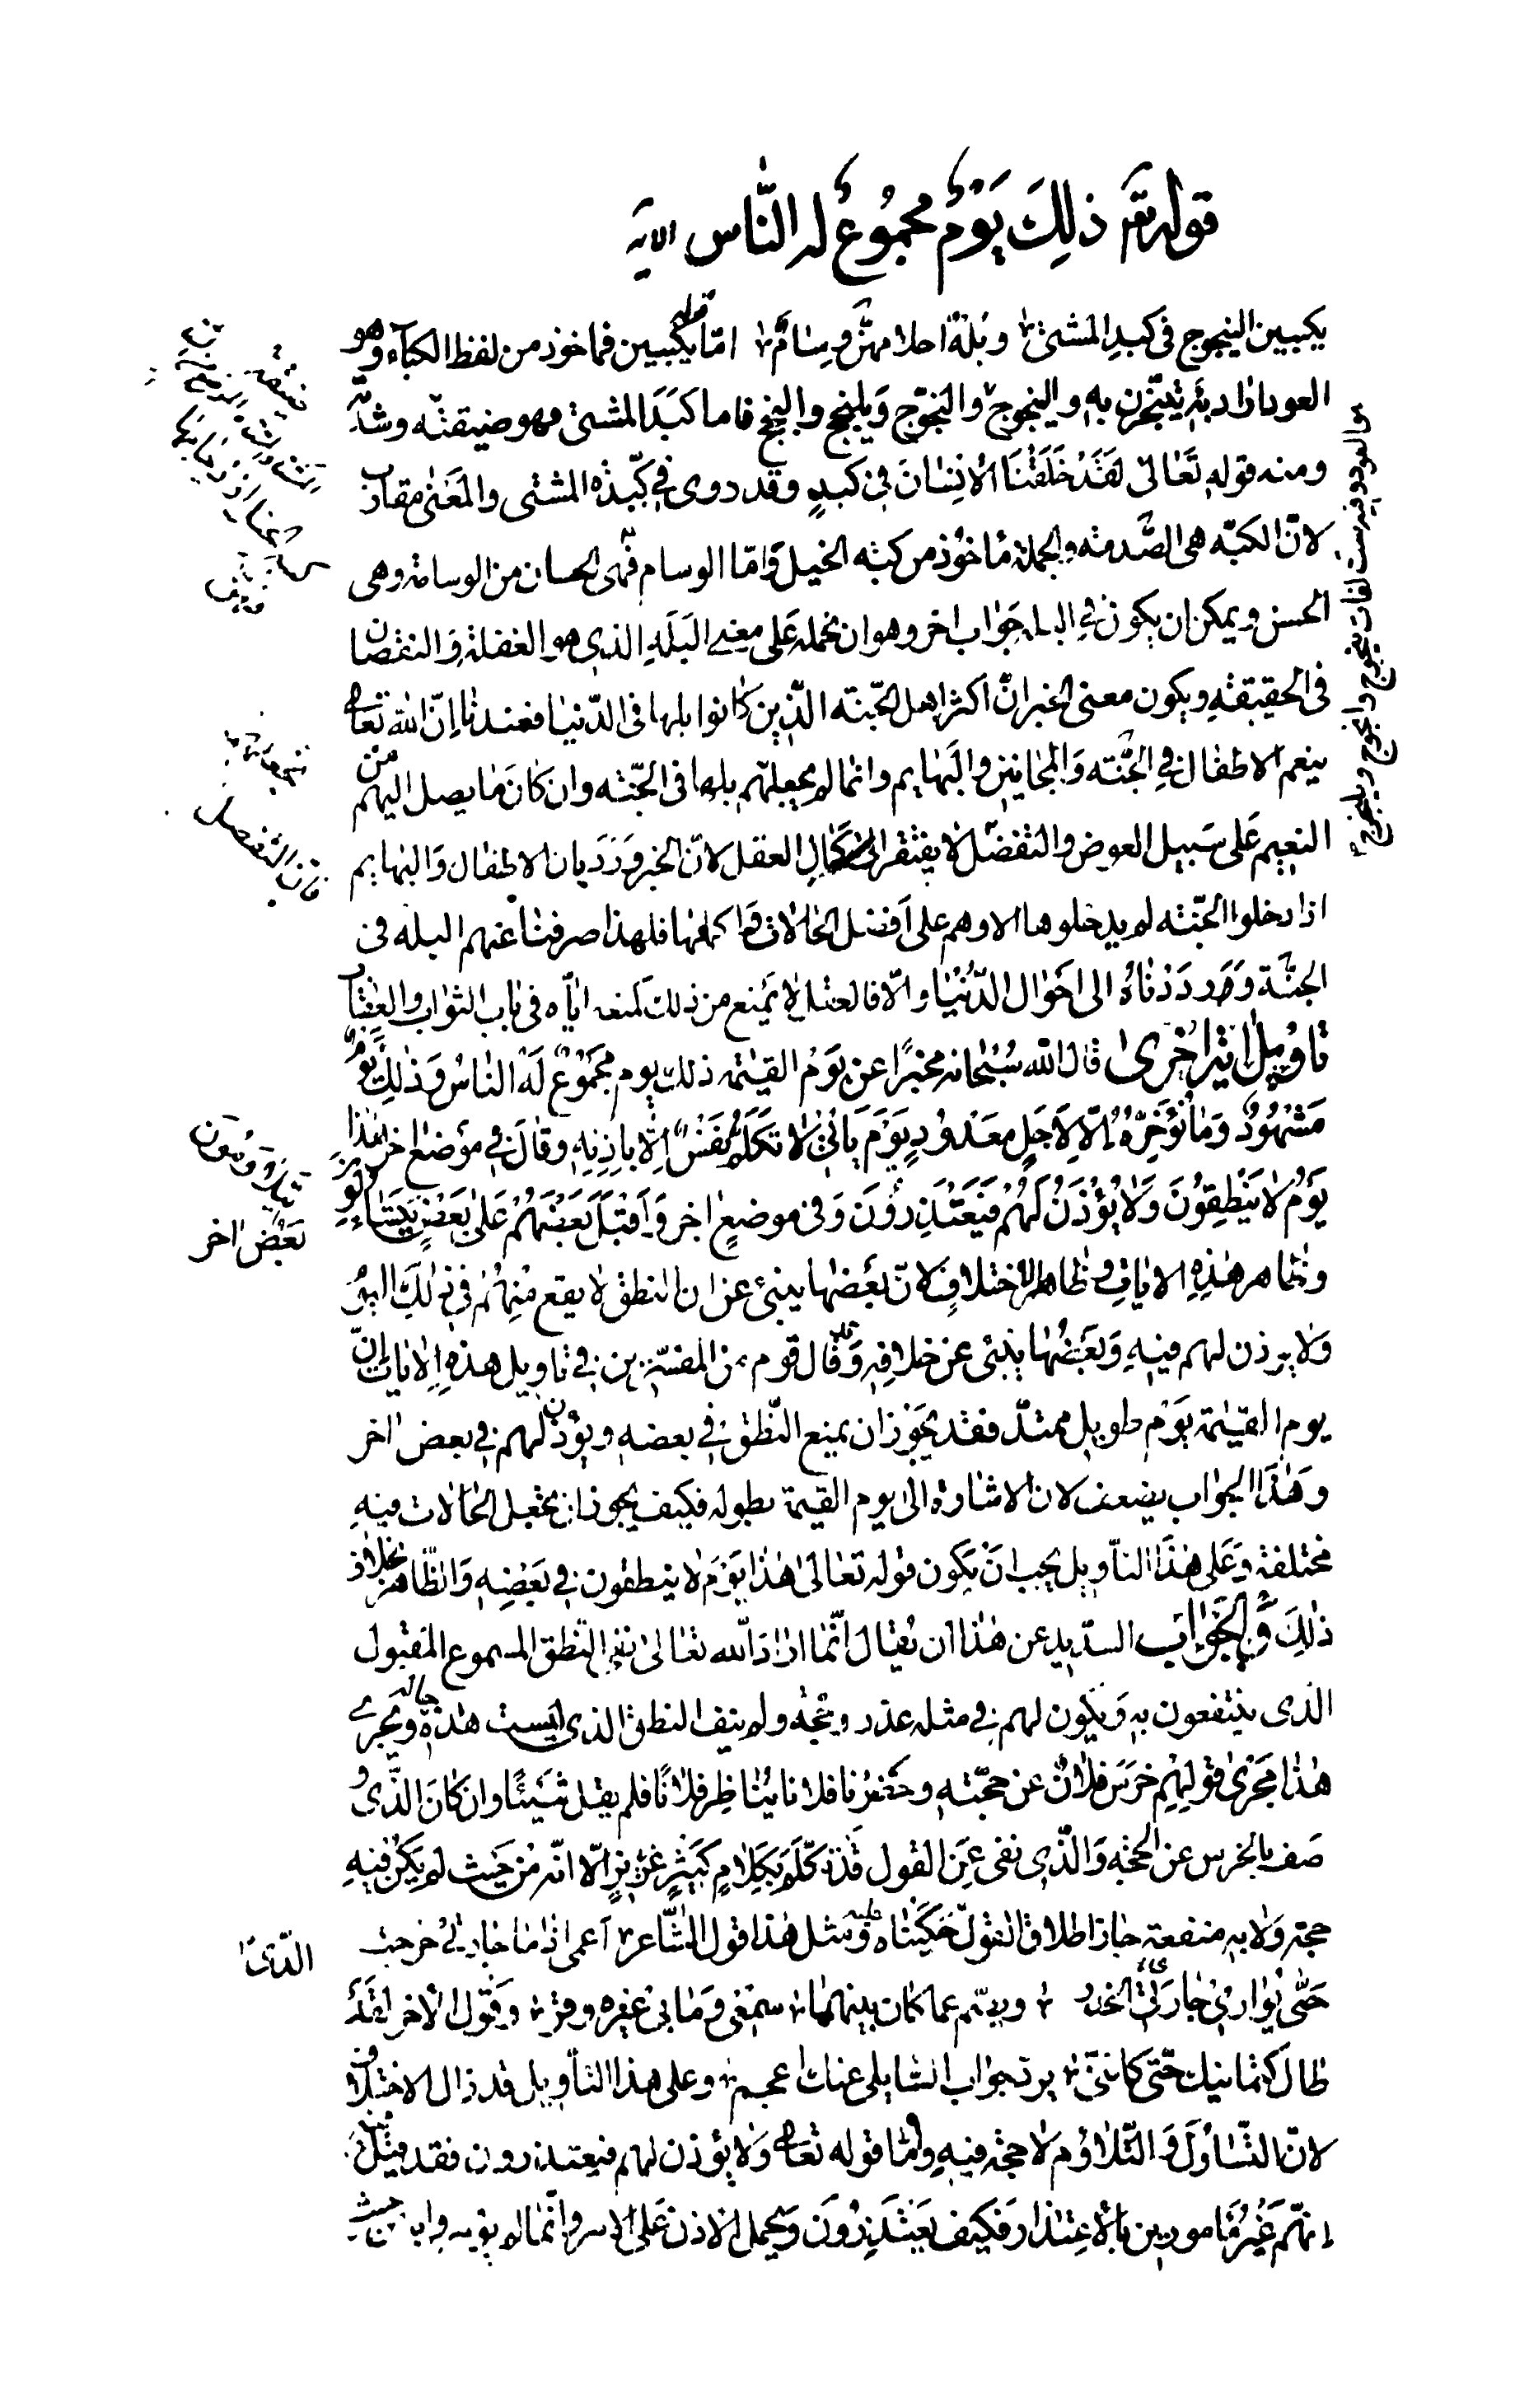 قوله تعر ذلِكَ يَوْمٌ مجمُوعٌ له النَّاس الايه
يكبين الينجوج في كبد المشتى وبُلهٌ احلامهنّ وسامٌ امّا قوله يكبين فماخوذ من لفظ الكباء وهو
العود اراد به يتبخّرن به والينجوج والنجوّج ويلنجج والنجج فاما كَبَدَ المشتى فهو ضيقته وشدّته
ومنه قوله تَعَالى لَقَدْ خَلَقْنَا الْاِنسَانَ في كبدٍ وقد روى في كبّة المشتى والمعنى مقارب
لانّ الكبّه هى الصّدمة والحملة ماخوذ من كبّه الخيل وامّا الوسام فهى الحسان من الوسامة وهى
الحسن ويمكن ان يكون في البله جواب اخر وهو ان نحمله على معنى البَلَهِ الذي هو الغفلة والنقصان
في الحقيقة ويكون معنى الخبر انّ اكثر اهل الجّنه الّذين كانوا بلها في الدّنيا فعندنا انّ الله تعالى
ينعم الاطفال في الجنّه والمجانين والبهايم وانما لم يجعلهم بلها في الجنّه وان كان ما يصل اليهم من
النعيم على سبيل العوض والتفضّل لا يفتقر الى كمال العقل لانّ الخبر ورد بان الاطفال والبهايم
اذا دخلوا الجنّه لم يدخلوها الا وهم على افضل الحالات واكملها فلهذا صرفنا عنهم البله في
الجنّة ورددناه الى احوال الدّنيا والّا فالعقل لا يمنع من ذلك كمنعه ايّاه في باب الثواب والعقاب
تاويل اية اخرى قال الله سُبْحانه مخبرًا عن يوم القيمة ذلك يوم مجموعٌ لَهُ الناسُ وَذلِكَ يومٌ
مَشْهُودٌ وَمَا نُؤَخِّرُهُ اِلّا لِاَجَلٍ معدُودٍ يَوْمَ يَاتي لا تَكَلَّمُ نَفْسٌ اِلّا باذنِهِ وقال في موضع اخر هٰذا
يَوْمُ لا يَنْطِقُونَ وَلا يُؤْذَنُ لَهُمْ فَيَعْتَذِرُونَ وَفي موضعٍ اخر وَاَقْبَلَ بَعْضُهُمْ عَلى بَعْضٍ يَتَسَاءَلُونَ
وظاهر هٰذِهِ الايات ظاهر الاختلاف لانّ بعضها ينبئ عن ان النطق لا يقع منهم في ذلك اليوم
ولا يوذن لهم فيه وبَعْضُها ينبئ عن خلافه وقد قال قوم من المفسّرين في تاويل هذه الايات انّ
يوم القيمة يوم طويل ممتدّ فقد يجوز ان يمنع النّطق في بعضه ويؤذن لهم في بعض اخر
وهٰذا الجواب يضعف لان الاشارة الى يوم القيمة بطوله فكيف يجوز ان تجعل الحالات فيه
مختلفة وَعَلى هٰذَا التأويل يجب انْ يكون قوله تعالى هٰذا يَوْمُ لا ينطقون في بعضِهِ والظّاهر بخلاف
ذلِكَ والجَوابُ السّديد عن هٰذا ان يُقال انّما اراد الله تعالى نفى النّطق المسموع المقبول
الذى ينتفعون به ويكون لهم في مثله عذر وحجّة ولم ينف النطق الذى ليست هٰذه حاله ويجرى
هٰذا مَجْرى قولهم خرس فلانٌ عن حجّته وحضرنا فلانا يُناظر فلانًا فلم يقل شَيْئًا وان كان الّذى وُ
صف بالخرس عن الحجّة والّذي نفى عنه القول قد تكلّم بكلامٍ كثيرٍ غزيرٍ الّا انّه من حيث لم يكن فيه
حجّة ولا به منفعة جاز اطلاق القول حكيناه عليه ومثل هذا قول الشّاعر اعمى اذا ما جارتي خرجت
حتّى يُواري جارتي الخدر ويصمّ عما كان بينهما سمعى وما بى غيره وقر وقول الاخر لقد
طال كتمانيك حتّى كاننى برد جواب السّايلى عنك اعجم وعلى هذا التأويل قد زال الاختلاف
لانّ التّساؤل والتّلاؤم لا حجّة فيه وامّا قوله تعالى ولا يؤذن لهم فيعتذرون فقد قيل
انهّم غَيْرُ مَامورين بالْاعتذار فكيف يعتذِرُونَ ويحمل الاذن على الامر وانّما لم يؤمروا به حيث
هو العود وفيه ست لغات ينجوج والنجوج ويلنجوج
فان التفضل
بَعْض اخر
الّذى